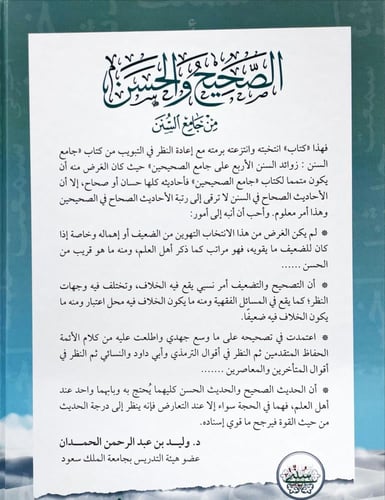 الصحيح والحسن
من جامع السنن
فهذا «كتاب» انتخبته وانتزعته برمته مع إعادة النظر في التبويب من كتاب «جامع
السنن : زوائد السنن الأربع على جامع الصحيحين» حيث كان الغرض منه أن
يكون متمما لكتاب «جامع الصحيحين» فأحاديثه كلها حسان أو صحاح، إلا أن
الأحاديث الصحاح في السنن لا ترقى إلى رتبة الأحاديث الصحاح في الصحيحين
وهذا أمر معلوم. وأحب أن أنبه إلى أمور:
* لم يكن الغرض من هذا الانتخاب التهوين من الضعيف أو إهماله وخاصة إذا
كان للضعيف ما يقويه، فهو مراتب كما ذكر أهل العلم، ومنه ما هو قريب من
الحسن ......
* أن التصحيح والتضعيف أمر نسبي يقع فيه الخلاف، وتختلف فيه وجهات
النظر؛ كما يقع في المسائل الفقهية ومنه ما يكون الخلاف فيه محل اعتبار ومنه ما
يكون الخلاف فيه ضعيفًا.
* اعتمدت في تصحيحه على ما وسع جهدي واطلعت عليه من كلام الأئمة
الحفاظ المتقدمين ثم النظر في أقوال الترمذي وأبي داود والنسائي ثم النظر في
أقوال المتأخرين والمعاصرين ......
* أن الحديث الصحيح والحديث الحسن كليهما يُحتج به وبابهما واحد عند
أهل العلم، فهما في الحجة سواء إلا عند التعارض فإنه ينظر إلى درجة الحديث
من حيث القوة فيرجح ما قوي إسناده.
د. وليد بن عبد الرحمن الحمدان
عضو هيئة التدريس بجامعة الملك سعود